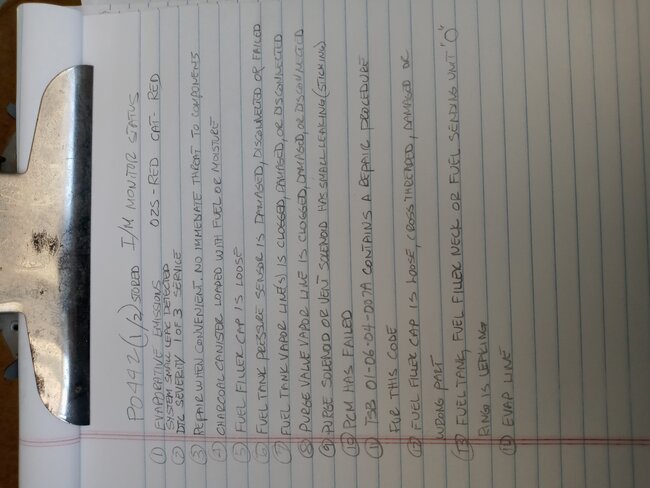 P0442 (1/2) STORED I/M MONITOR STATUS
① EVAPORATIVE EMISSIONS O2S-RED CAT-RED
SYSTEM SMALL LEAK DETECTED
② DTC SEVERITY 1 OF 3 SERVICE
③ REPAIR WHEN CONVENIENT. NO IMMEDIATE THREAT TO COMPONENTS
④ CHARCOAL CANISTER LOADED WITH FUEL OR MOISTURE
⑤ FUEL FILLER CAP IS LOOSE
⑥ FUEL TANK PRESSURE SENSOR IS DAMAGED, DISCONNECTED OR FAILED
⑦ FUEL TANK VAPOR LINE(S) IS CLOGGED, DAMAGED, OR DISCONNECTED
⑧ PURGE VALVE VAPOR LINE IS CLOGGED, DAMAGED, OR DISCONNECTED
⑨ PURGE SOLENOID OR VENT SOLENOID HAS SMALL LEAKING (STICKING)
⑩ PCM HAS FAILED
⑪ TSB 01-06-04-007A CONTAINS A REPAIR PROCEDURE
FOR THIS CODE
⑫ FUEL FILLER CAP IS LOOSE, CROSS THREADED, DAMAGED OR
WRONG PART
⑬ FUEL TANK, FUEL FILLER NECK OR FUEL SENDING UNIT "O"
RING IS LEAKING
⑭ EVAP LINE